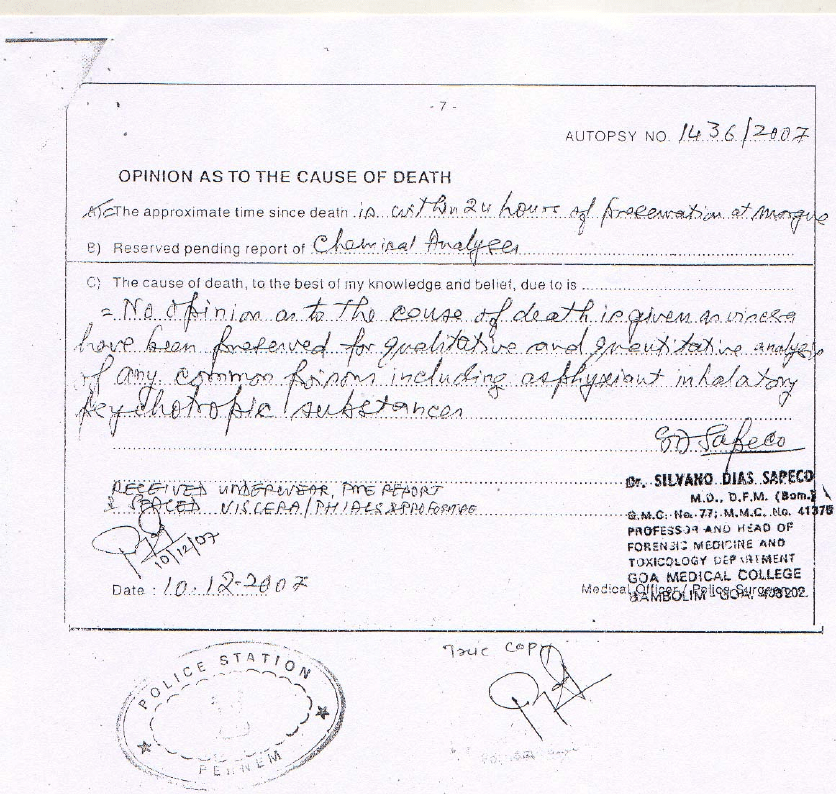 - 7 -
AUTOPSY NO. 1436/2007
OPINION AS TO THE CAUSE OF DEATH
The approximate time since death is within 24 hours of preservation at morgue
B) Reserved pending report of Chemical Analyser
C) The cause of death, to the best of my knowledge and belief, due to is
= No opinion as to the cause of death is given as viscera
have been preserved for qualitative and quantitative analysis
of any common poisons including asphyxiant inhalatory
psychotropic substances
Sapeco
RECEIVED UNDERWEAR, PME REPORT
& SEALED VISCERA/PHIALS & PROFORMAE
10/12/07
Dr. SILVANO DIAS SAPECO
M.D., D.F.M. (Bom.)
G.M.C. No. 77; M.M.C. No. 41375
PROFESSOR AND HEAD OF
FORENSIC MEDICINE AND
TOXICOLOGY DEPARTMENT
GOA MEDICAL COLLEGE
BAMBOLIM - GOA. 403202.
Date : 10.12-2007
Medical Officer / Police Surgeon
True COPY
POLICE STATION
PERNEM